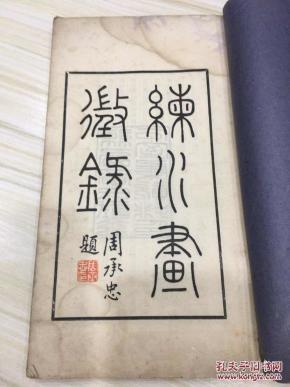 練水畫
徵錄
周承忠
題
孔夫子旧书网